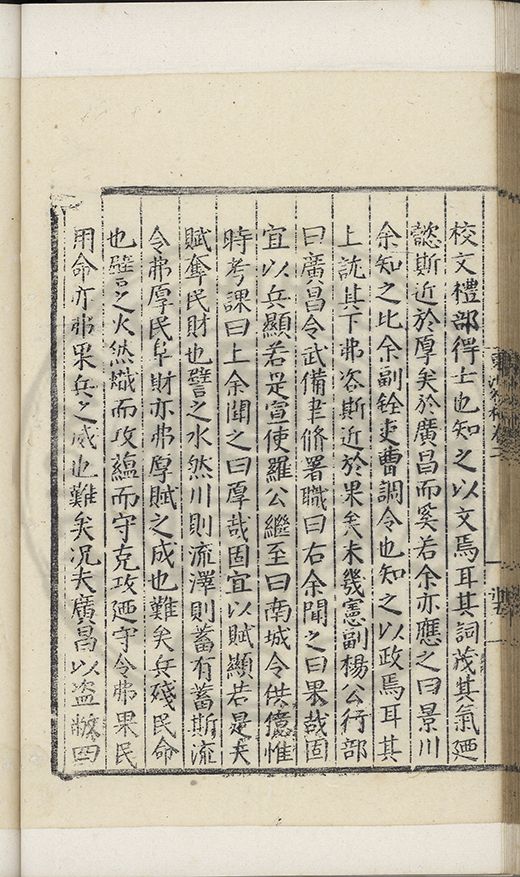 校文禮部得士也知之以文焉耳其詞茂其氣迺
懿斯近於厚矣於廣昌而奚若余亦應之曰景川
余知之比余副銓吏曹調令也知之以政焉耳其
上訧其下弗咨斯近於果矣未幾憲副楊公行部
曰廣昌令武備聿脩署職曰右余聞之曰果哉固
宜以兵顯若是宣使羅公繼至曰南城令供億惟
時考課曰上余聞之曰厚哉固宜以賦顯若是夫
賦奪民財也譬之水然川則流澤則蓄有蓄斯流
令弗厚民阜財亦弗厚賦之成也難矣兵殘民命
也譬之火然熾而攻蘊而守克攻迺守令弗果民
用命亦弗果兵之威也難矣况夫廣昌以盜敝四